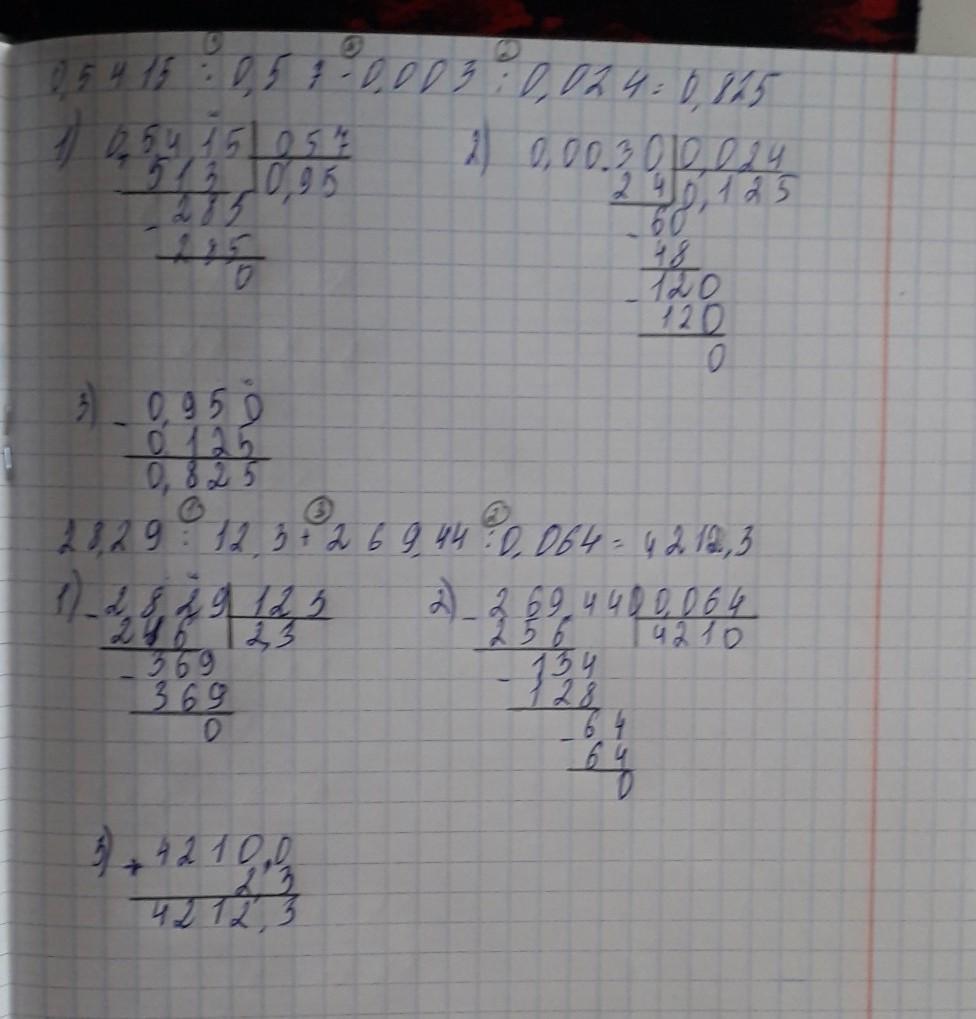 ① ③ ②
0,5415 : 0,57 - 0,003 : 0,024 = 0,825
1) 0,5415 057
513 0,95
- 285
285
0
2) 0,00.30 0,024
24 0,125
- 60
48
- 120
120
0
3) - 0,950
0,125
0,825
① ③ ②
28,29 : 12,3 + 269,44 : 0,064 = 4212,3
1) - 2829 123
246 2,3
- 369
369
0
2) - 269,440 0,064
256 4210
- 134
128
- 64
64
0
3) + 4210,0
2,3
4212,3